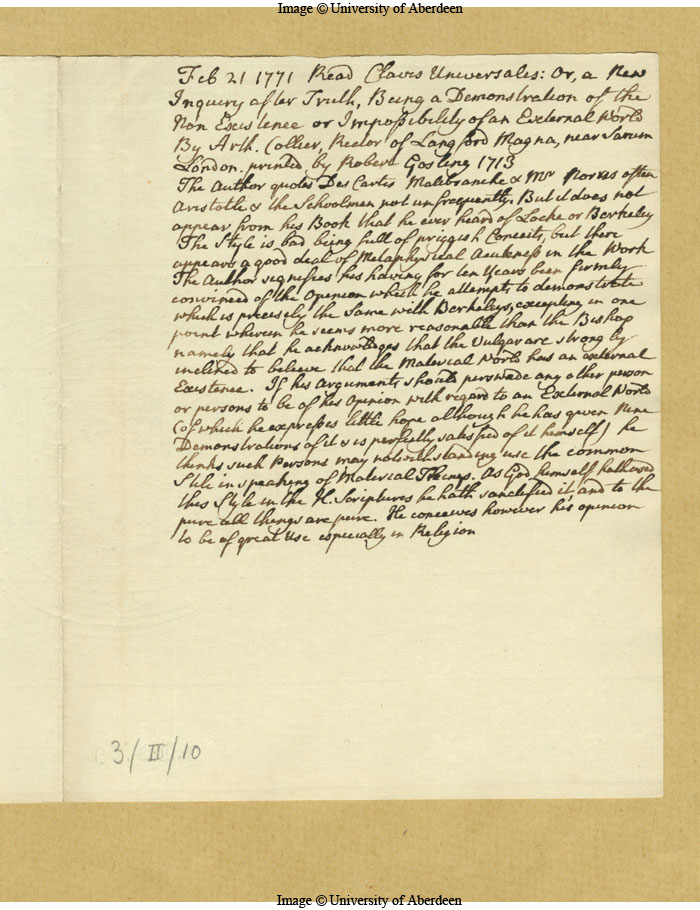 Image © University of Aberdeen
Feb 21 1771 Read Clavis Universales: Or, a New
Inquiry after Truth, Being a Demonstration of the
Non Existence or Impossibility of an External World
By Arth. Collier, Rector of Langford Magna, near Sarum
London. printed by Robert Gosling 1713
The Author quotes Des Cartes Malebranche & Mr Norris often
Aristotle & the Schoolmen not unfrequently. But it does not
appear from his Book that he ever heard of Locke or Berkeley
The Style is bad being full of priggish Conceits, but there
appears a good deal of Metaphysical Acuteness in the Work
The Author signifies his having for ten Years been firmly
convinced of the Opinion which he attempts to demonstrate
which is precisely the Same with Berkeleys, excepting in one
point wherein he seems more reasonable than the Bishop
namely that he acknowledges that the Vulgar are strongly
inclined to believe that the Material World has an external
Existence. If his Arguments should perswade any other person
or persons to be of his Opinion with regard to an External World
(of which he expresses little hope although he has given Nine
Demonstrations of it & is perfectly satisfied of it himself) he
thinks such Persons may notwithstanding use the common
Stile in speaking of Material Things. As God himself hath used
this Style in the H. Scriptures he hath sanctified it, and to the
pure all things are pure. He conceives however his opinion
to be of great Use especially in Religion
3/II/10
Image © University of Aberdeen